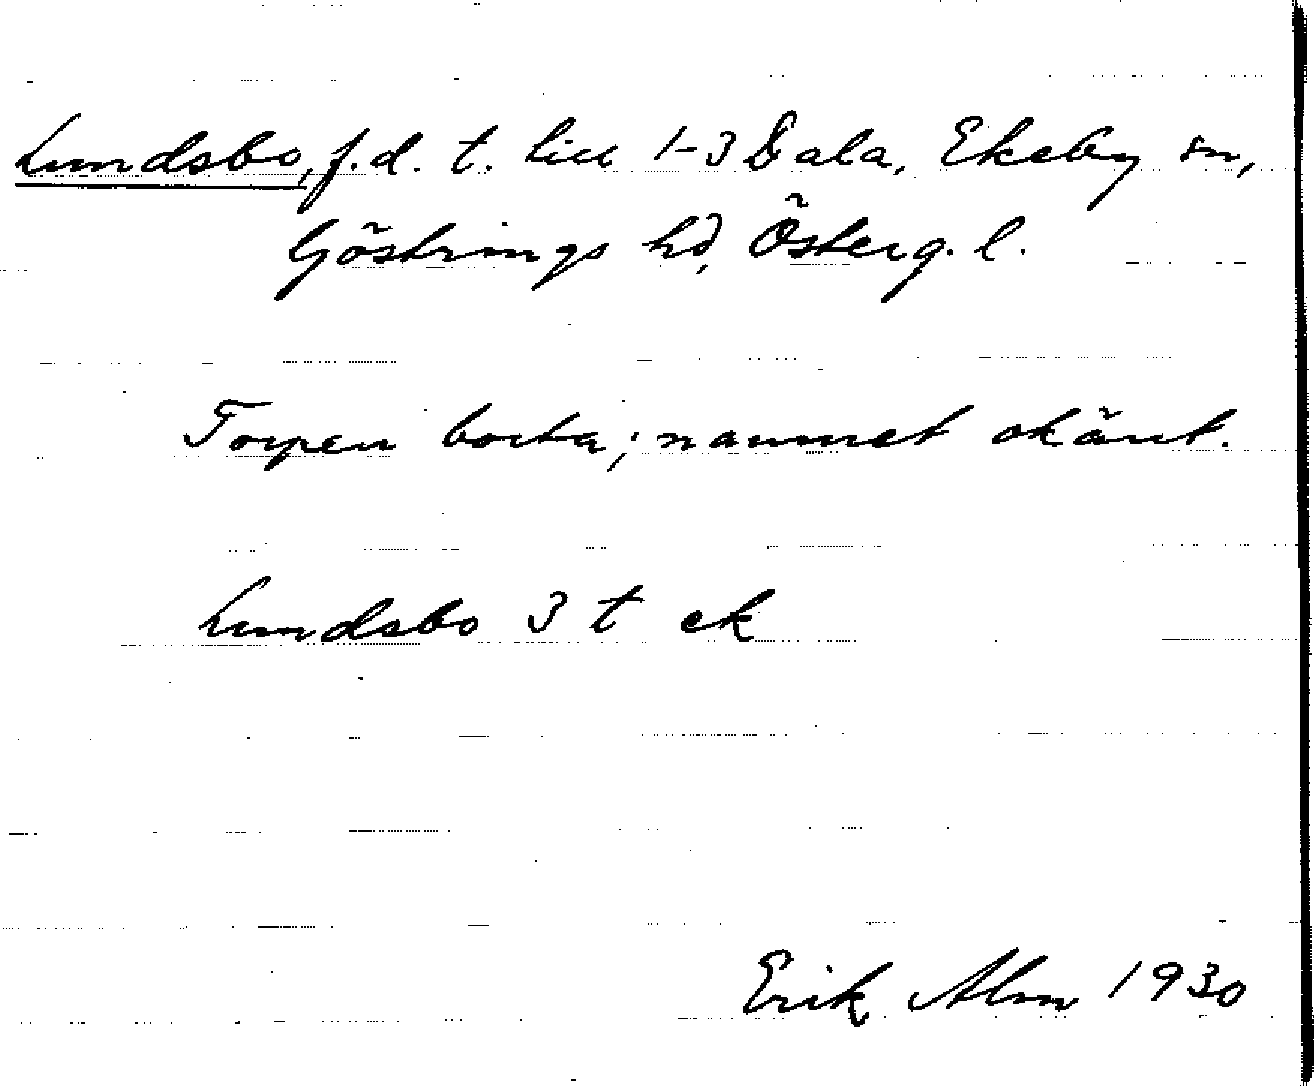 Lundsbo, f.d. t. till 1-3 Sala, Ekeby sn,
Göstrings hd, Österg. l.
Torpen borta; namnet okänt.
Lundsbo 3 t ek
Erik Alm 1930